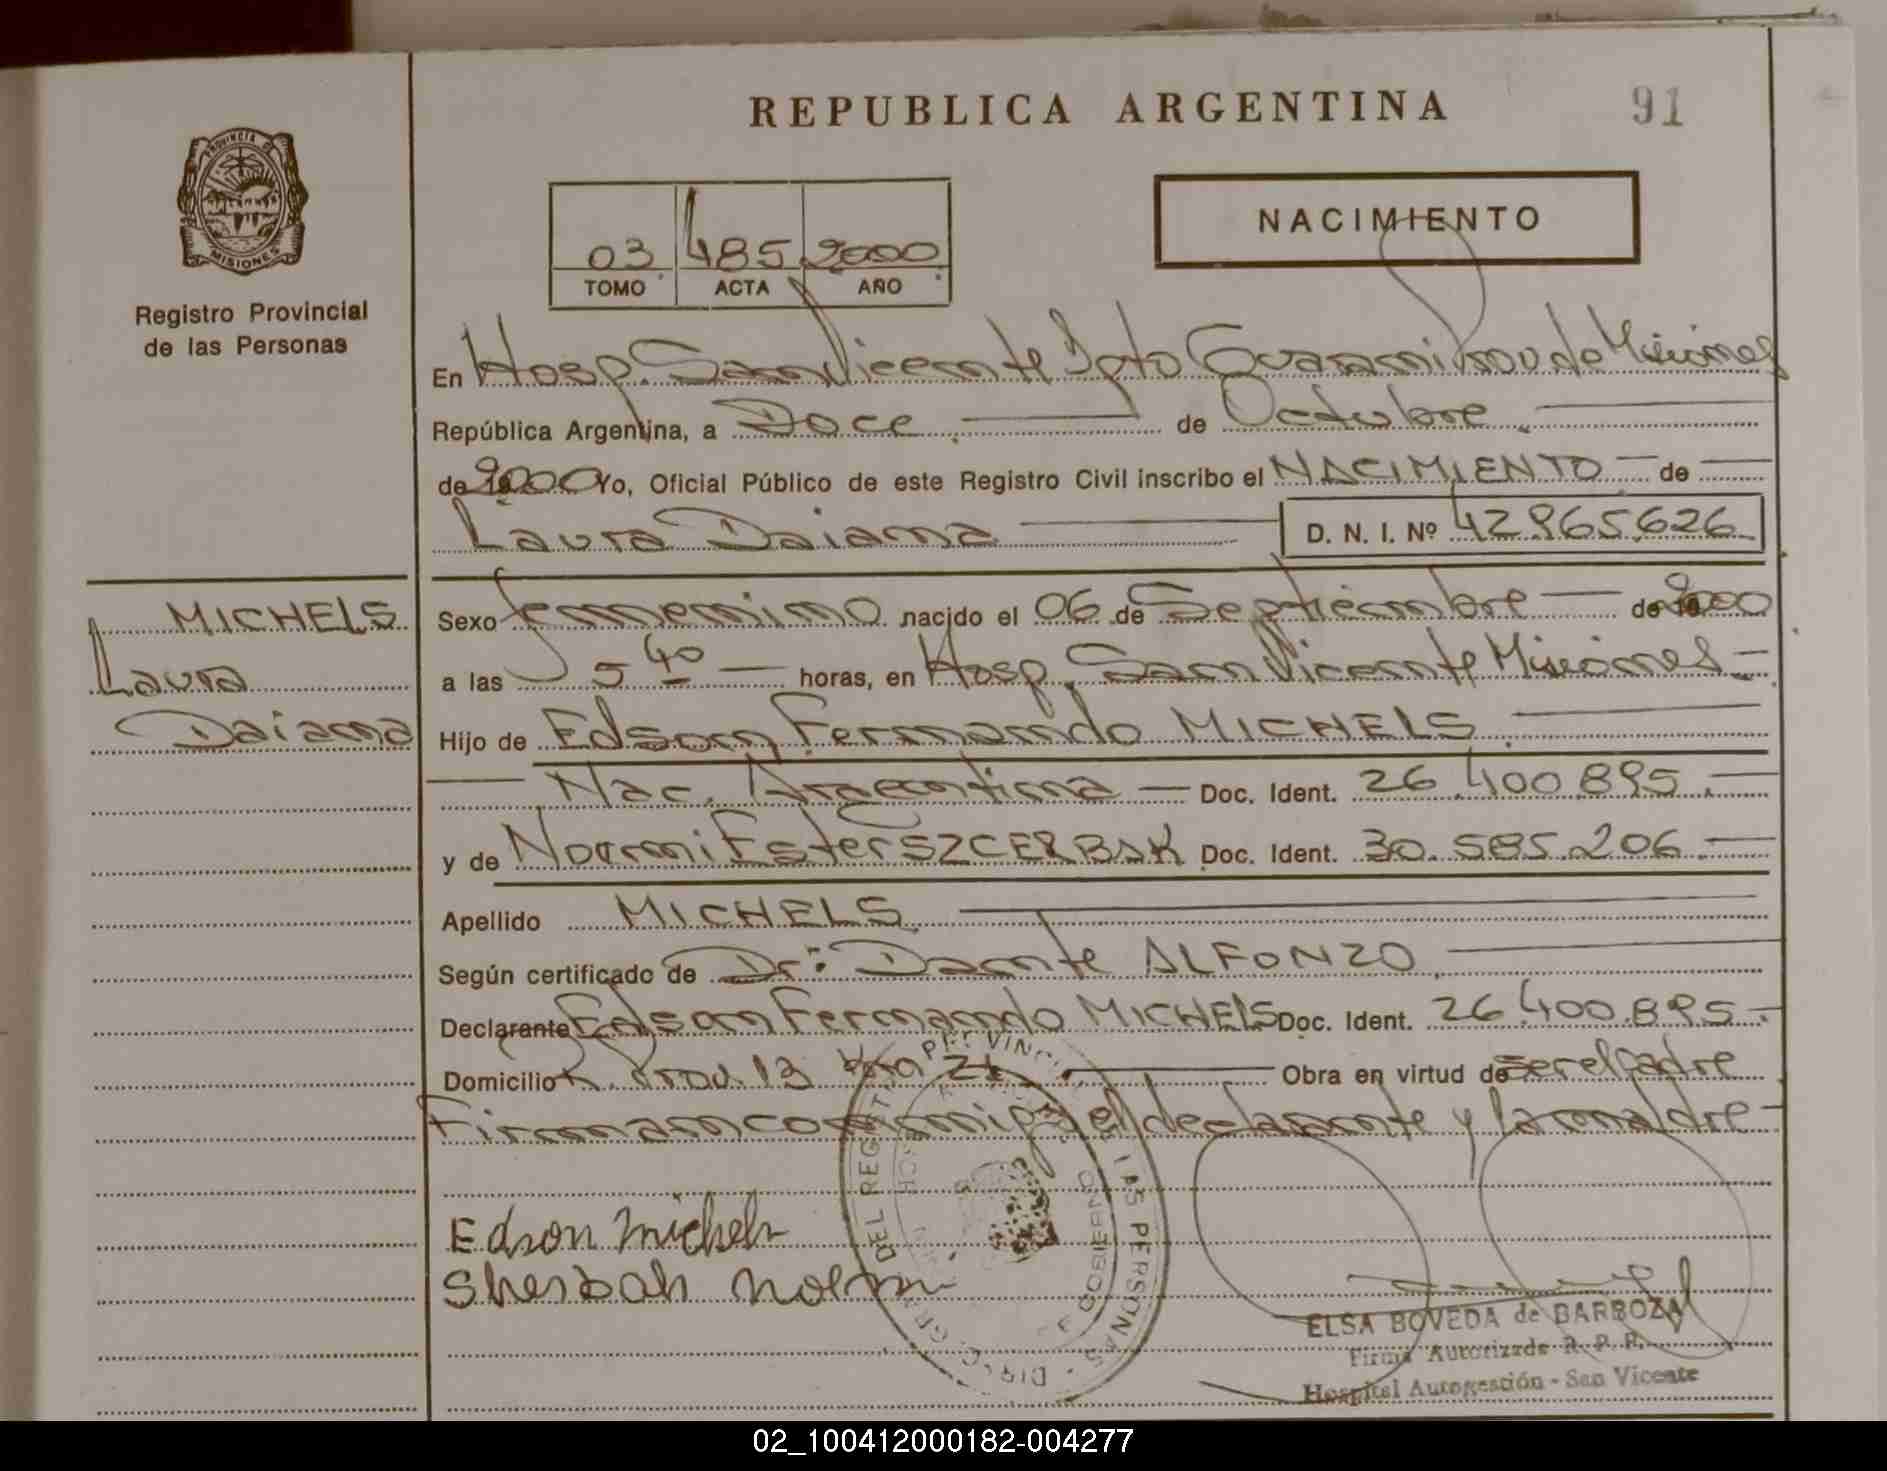 REPUBLICA ARGENTINA
91
PROVINCIA DE
MISIONES
Registro Provincial
de las Personas
03 485 2000
TOMO ACTA AÑO
NACIMIENTO
En Hosp. San Vicente Dpto Guarani Prov de Misiones
República Argentina, a Doce de Octubre
de 2000 Yo, Oficial Público de este Registro Civil inscribo el NACIMIENTO de
Laura Daiana D. N. I. Nº 42.965.626
MICHELS
Laura
Daiana
Sexo femenino nacido el 06 de Septiembre de 2000
a las 5 40 horas, en Hosp. San Vicente Misiones
Hijo de Edson Fernando MICHELS
Nac. Argentina Doc. Ident. 26.400.895
y de Normi Ester SZCERBAK Doc. Ident. 30.585.206
Apellido MICHELS
Según certificado de Dr: Dante ALFONZO
Declarante Edson Fernando MICHELS Doc. Ident. 26.400.895
Domicilio R. Prov. 13 Km 21 Obra en virtud de ser el padre
Firman conmigo el declarante y la madre
Edson Michels
Sherbah
DEL REGISTRO PROVINCIAL DE LAS PERSONAS
GOBIERNO
ELSA BOVEDA de BARBOZA
Firma Autorizada R. P. P.
Hospital Autogestión - San Vicente
02_100412000182-004277